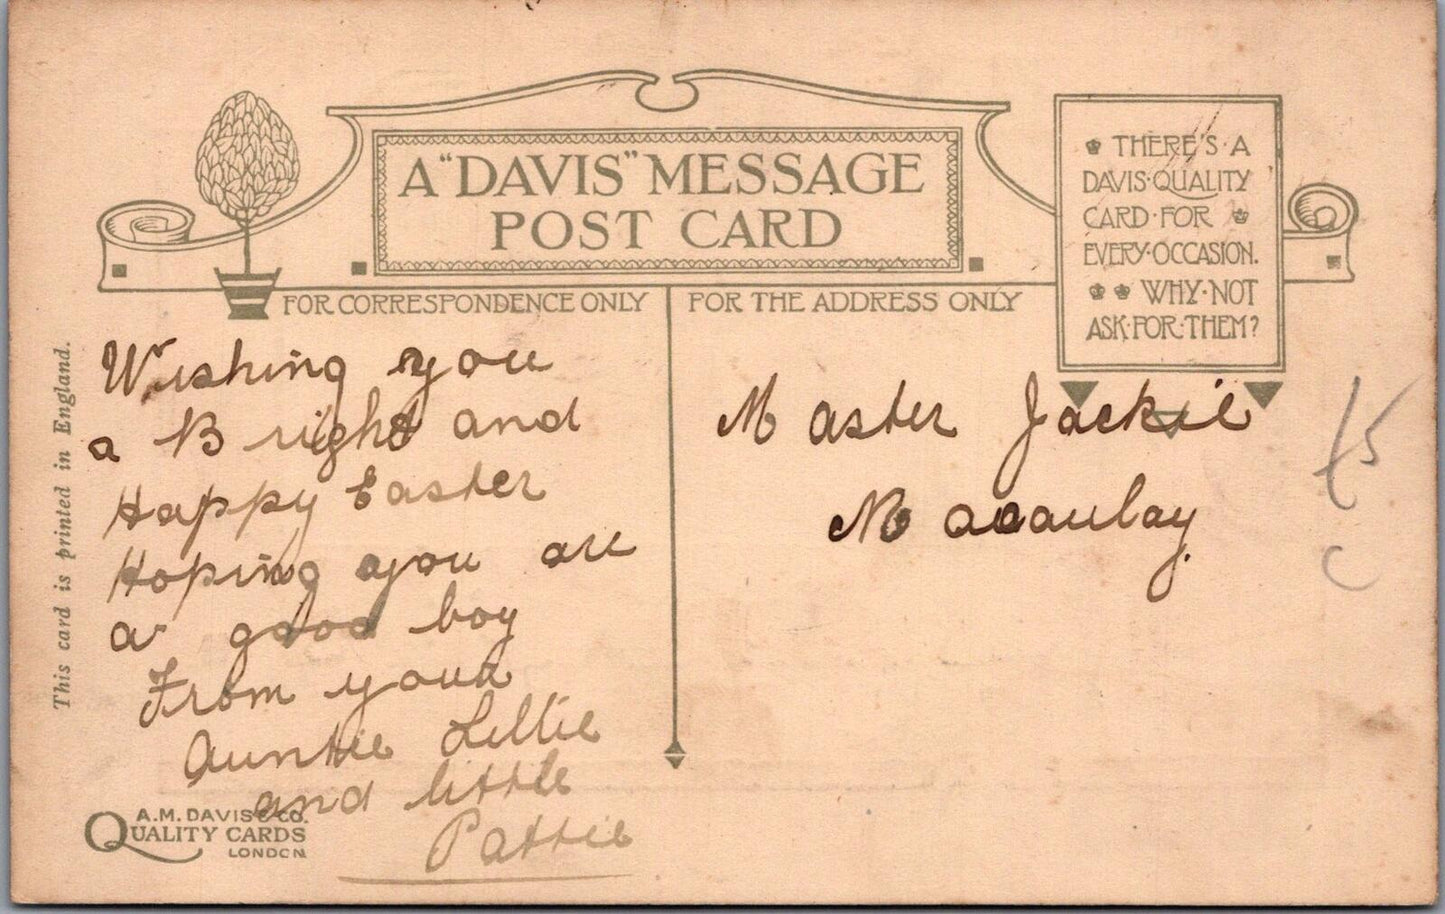 A "DAVIS" MESSAGE
POST CARD
THERE'S A
DAVIS QUALITY
CARD FOR
EVERY OCCASION.
WHY NOT
ASK FOR THEM?
FOR CORRESPONDENCE ONLY
FOR THE ADDRESS ONLY
This card is printed in England.
Wishing you
a Bright and
Happy Easter
Hoping you are
a good boy
From your
Auntie Lillie
and little
Pattie
Master Jackie
Macaulay.
A.M. DAVIS & CO.
QUALITY CARDS
LONDON